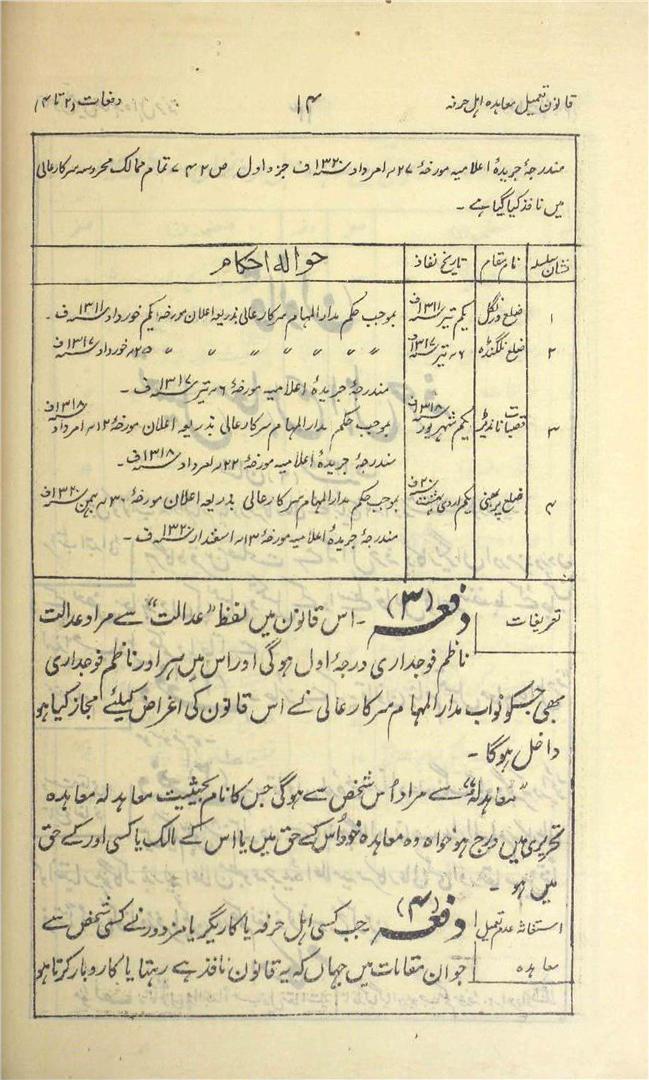 قانون تعمیل معاہدہ اہل حرفہ ۱۴ دفعات (۲ تا ۴)
مندرجۂ جریدۂ اعلامیہ مورخۂ ۲۷ امرداد ۱۳۲۰ ف جزو اول ص ۷۴۲ تمام ممالک محروسہ سرکار عالی
میں نافذ کیا گیا ہے ۔
نشان سلسلہ نام مقام تاریخ نفاذ حوالہ احکام
۱ ضلع ورنگل یکم تیر ۱۳۱۱ ف بموجب حکم مدار المہام سرکار عالی بذریعہ اعلان مورخۂ یکم خورداد ۱۳۱۱ ف ۔
۲ ضلع نلگنڈہ ۶ تیر ۱۳۱۷ ف " " " " " " " ۲۵ خورداد ۱۳۱۷ ف
مندرجۂ جریدۂ اعلامیہ مورخۂ ۶ تیر ۱۳۱۷ ف ۔
۳ قصبات ناندیڑ یکم شہریور ۱۳۱۸ ف بموجب حکم مدار المہام سرکار عالی بذریعہ اعلان مورخۂ ۱۲ امرداد ۱۳۱۸ ف
مندرجۂ جریدۂ اعلامیہ مورخۂ ۲۲ امرداد ۱۳۱۸ ف ۔
۴ ضلع پربھنی یکم اردی بہشت ۲۰ ف بموجب حکم مدار المہام سرکار عالی بذریعہ اعلان مورخۂ بہمن ۱۳۲۰ ف
مندرجۂ جریدۂ اعلامیہ مورخۂ ۱۳ اسفندار ۱۳۲۰ ف ۔
تعریفات دفعہ (۳) ۔ اس قانون میں لفظ "عدالت" سے مراد عدالت
ناظم فوجداری درجۂ اول ہوگی اور اس میں ہر اور ناظم فوجداری
بھی جسکو نواب مدار المہام سرکار عالی نے اس قانون کی اغراض کیلئے مجاز کیا ہو
داخل ہوگا ۔
"معاہدلہٗ" سے مراد اُس شخص سے ہوگی جس کا نام بحیثیت معاہد لہ معاہدہ
تحریری میں درج ہو خواہ وہ معاہدہ خود اُس کے حق میں یا اس کے مالک یا کسی اور کے حق
میں ہو ۔
استغاثہ عدم تعمیل دفعہ (۴) ۔ جب کسی اہل حرفہ یا کاریگر یا مزدور نے کسی شخص سے
معاہدہ جو ان مقامات میں جہاں کہ یہ قانون نافذ ہے رہتا یا کاروبار کرتا ہو